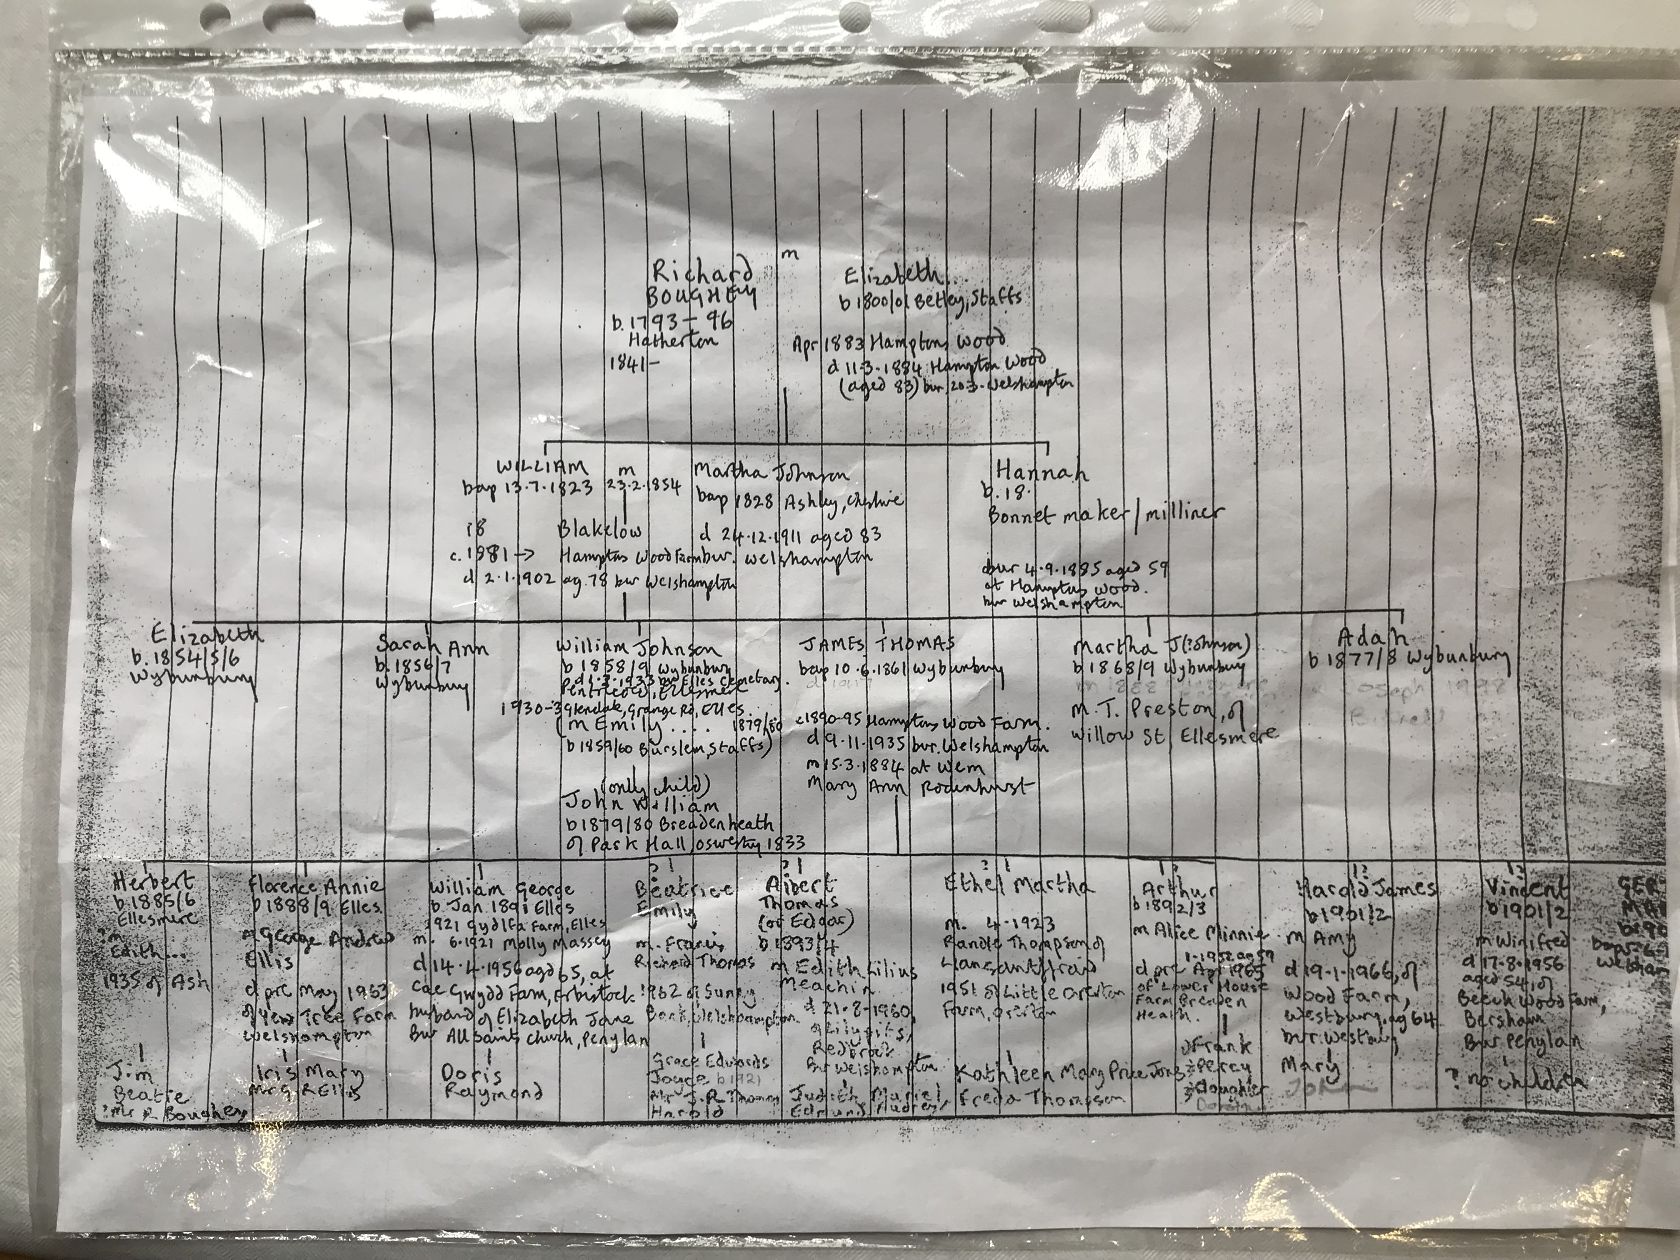 m
Richard
BOUGHEY
b.1793-96
Hatherton
1841-
Elizabeth...
b 1800/01 Betley, Staffs
Apr 1883 Hampton Wood
d 11.3.1884 Hampton Wood
(aged 83) bur. 20.3. Welshampton
WILLIAM
bap 13.7.1823
m
23.2.1854
Martha Johnson
bap 1828 Ashley, Cheshire
18 Blakelow
d 24.12.1911 aged 83
c.1881-> Hampton Wood Farm bur. Welshampton
d 2.1.1902 ag.78 bur Welshampton
Hannah
b.18.
Bonnet maker/milliner
bur 4.9.1885 aged 59
at Hampton Wood.
bur Welshampton
Elizabeth
b.1854/5/6
Wybunbury
Sarah Ann
b.1856/7
Wybunbury
William Johnson
b 1858/9 Wybunbury
Elles Cemetary.
Ellesmere
1930-3 Glendale, Grange Rd, Elles
(m Emily .... 1879/80
b 1859/60 Burslem, Staffs)
(only child)
John William
b 1879/80 Breadenheath
of Park Hall, Oswestry 1833
JAMES THOMAS
bap 10.6.1861 Wybunbury
c1890-95 Hampton Wood Farm.
d 9.11.1935 bur. Welshampton
m 15.3.1884 at Wem
Mary Ann Rodenhurst
Martha J(?Johnson)
b 1868/9 Wybunbury
m. T. Preston, of
Willow St Ellesmere
Adah
b 1877/8 Wybunbury
Herbert
b 1885/6
Ellesmere
?m
Edith...
1935 of Ash
Jim
Beatie
?Mr R Boughey
Florence Annie
b 1888/9 Elles.
m George Andrew
Ellis
d pre May 1963
of Yew Tree Farm
Welshampton
Iris Mary
Mr G R Ellis
William George
b Jan 1891 Elles
1921 Gydlfa Farm, Elles
m. 6.1921 Molly Massey
d 14.4.1956 aged 65, at
Cae Gwydd Farm, Erbistock
husband of Elizabeth Jane
Bur All Saints Church, Penylan
Doris
Raymond
?
Beatrice
Emily
m. Francis
Richard Thomas
1962 of Sunny
Bank, Welshampton.
Grace Edwards
Joyce b1921
Mr J.R Thomas
Harold
?
Albert
Thomas
(or Edgar)
b.1893/4
m Edith Lilius
Meachin
d 21.8.1960,
of Lilypits,
Redbrook
Bur Welshampton
Judith Muriel,
Edmund Audrey
?
Ethel Martha
m. 4.1923
Randle Thompson of
Llansantffraid
1951 of Little Overton
Farm, Overton
Kathleen Mary Price Jones
Freda Thompson
??
Arthur
b 1892/3
m Alice Minnie
1.1952 ag 59
d pre Apr 1965
of Lower House
Farm Breaden
Heath.
Frank
Percy
daughter
??
Harold James
b 1901/2
m Amy
d 19.1.1966, of
Wood Farm,
Westbury, ag 64
bur. Westbury
Mary
John
1?
Vincent
b 1901/2
m Winifred
d 17.8.1956
aged 54, of
Beech Wood Farm,
Bersham
Bur Penylan
? no children